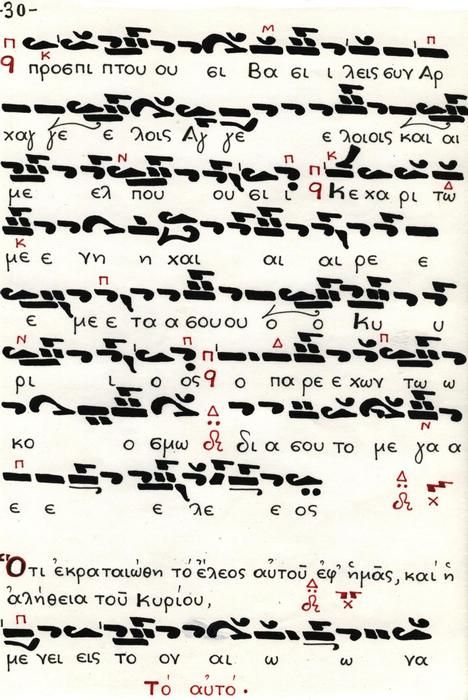 -30-
προσπι πτου ου σι Βα σι ι λεις συν Αρ
χαγ γε ε λοις Αγ γε ε λοιοις και αι
με ελ που ου σι ι Κε χα ρι τω
με ε νη η χαι αι αι ρε ε
ε με ε τα α σου ου ο ο Κυ υ
ρι ι ο ος ο πα ρε ε χων τω ω
κο ο σμω δι α σου το με γα α
ε ε ε λε ε ος
Ὅτι ἐκραταιώθη τό ἔλεος αὐτοῦ ἐφ' ἡμᾶς, καί ἡ
ἀλήθεια τοῦ Κυρίου,
με νει εις το ον αι ω ω να
Τό αὐτό.